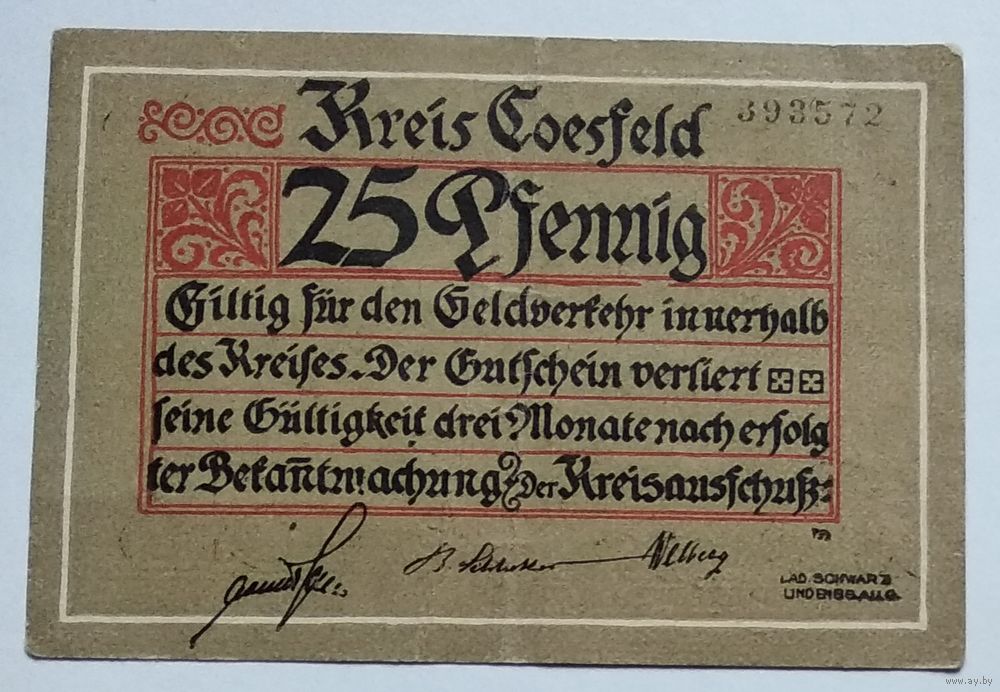 Kreis Coesfeld
393572
25 Pfennig
Giltig für den Geldverkehr innerhalb
des Kreises. Der Gutschein verliert
seine Gültigkeit drei Monate nach erfolg
ter Bekan̄tmachung Der Kreisausschuß:
B.
LAD. SCHWARZ
LINDENBG. ALLG.
www.ay.by